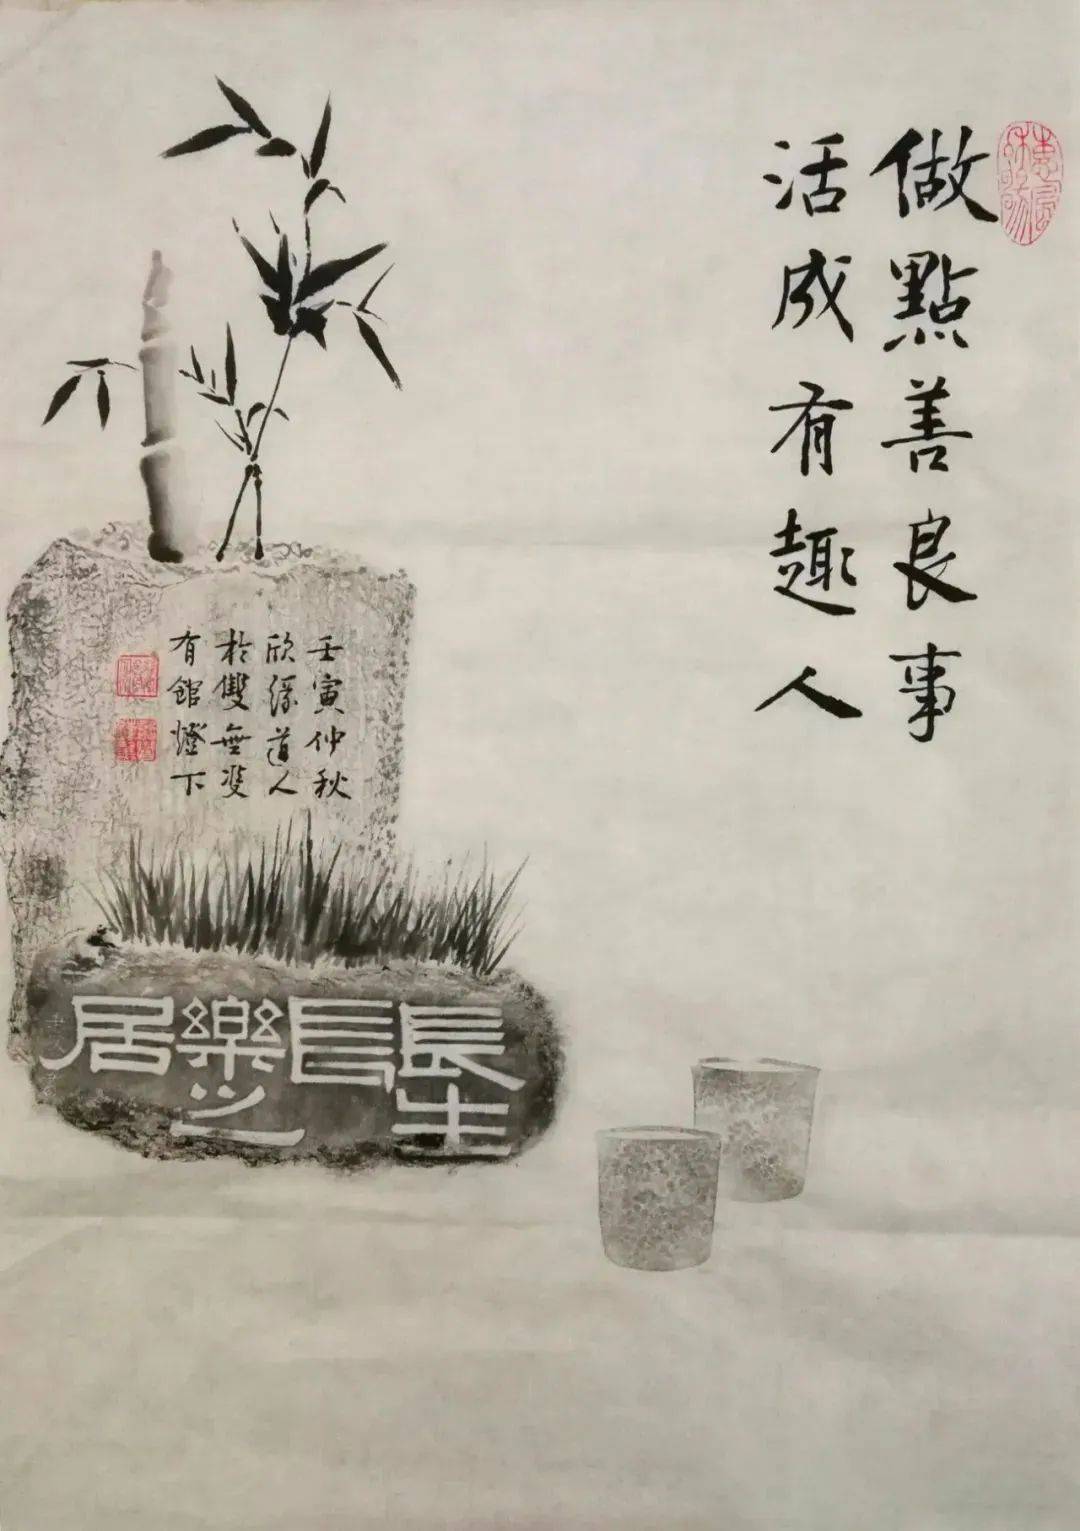 做點善良事
活成有趣人
壬寅仲秋
欣道人
於雙無
有館燈下
長生長樂之居